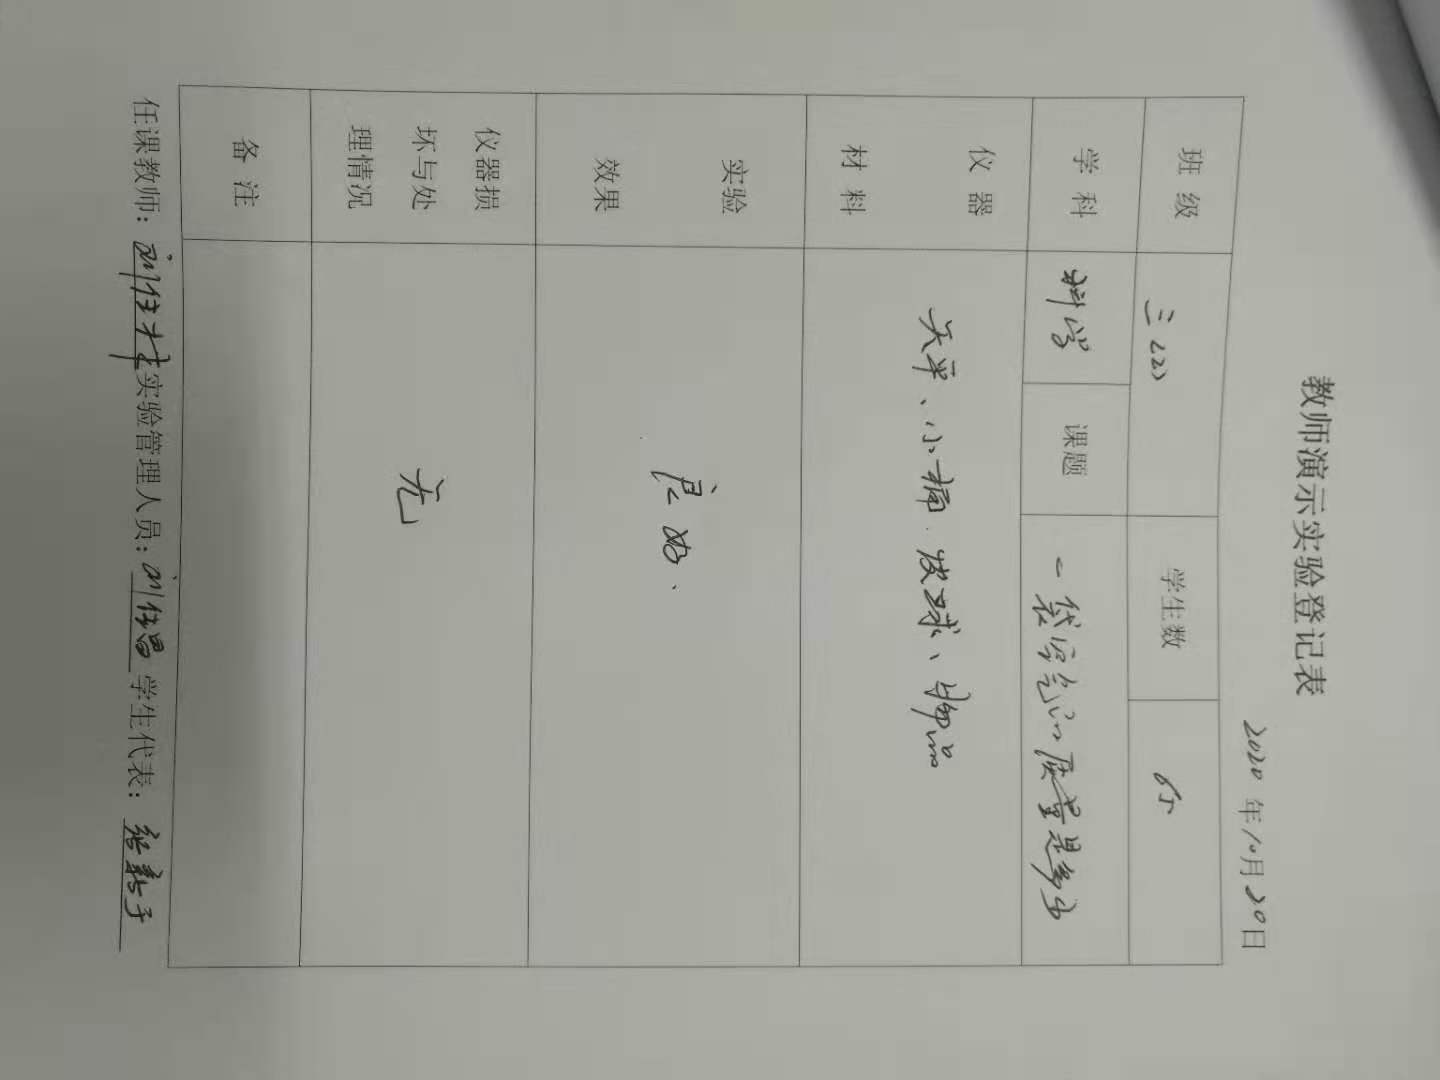 教师演示实验登记表
2020年10月20日
班 级 三(2) 学生数 65
学 科 科学 课题 一袋空气的质量是多少
仪 器 材 料 天平、小桶、皮球、
实验效果 良好.
仪器损坏与处理情况 无
备 注
任课教师: 实验管理人员: 学生代表: